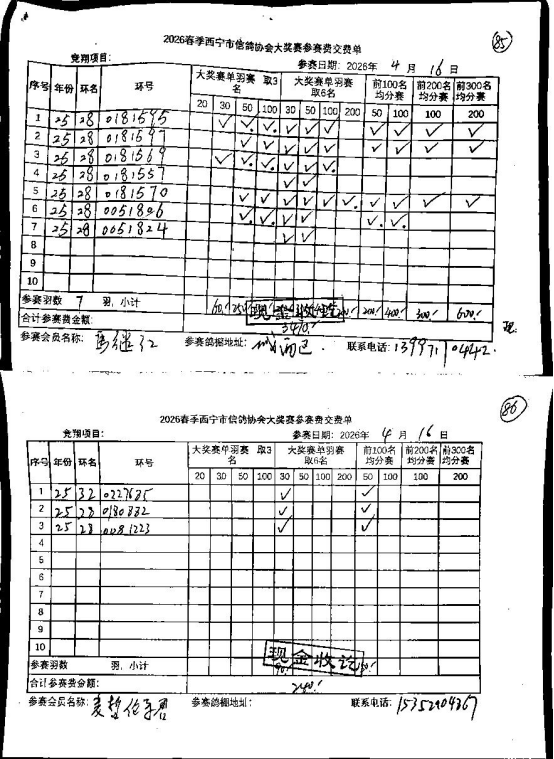 2026春季西宁市信鸽协会大奖赛参赛费交费单
85
竞翔项目: 参赛日期: 2026年 4 月 16 日
序号 年份 环名 环号 大奖赛单羽赛 取3名 大奖赛单羽赛 取6名 前100名均分赛 前200名均分赛 前300名均分赛
20 30 50 100 30 50 100 200 50 100 100 200
1 25 28 0181595 ✓ ✓ ✓ ✓ ✓ ✓ ✓ ✓ ✓ ✓
2 25 28 0181597 ✓ ✓ ✓ ✓ ✓ ✓ ✓ ✓ ✓
3 25 28 0181569 ✓ ✓ ✓ ✓ ✓ ✓
4 25 28 0181557 ✓ ✓
5 25 28 0181570 ✓ ✓ ✓ ✓ ✓ ✓ ✓ ✓ ✓ ✓
6 25 28 0051806 ✓ ✓ ✓ ✓ ✓ ✓
7 25 28 0051824 ✓ ✓
8
9
10
参赛羽数 7 羽, 小计 60 250 现金收讫 200 200 400 300 600
合计参赛费金额: 3470
参赛会员名称: 马继江 参赛鸽棚地址: 城西区 联系电话: 0442 现
2026春季西宁市信鸽协会大奖赛参赛费交费单
86
竞翔项目: 参赛日期: 2026年 4 月 16 日
序号 年份 环名 环号 大奖赛单羽赛 取3名 大奖赛单羽赛 取6名 前100名均分赛 前200名均分赛 前300名均分赛
20 30 50 100 30 50 100 200 50 100 100 200
1 25 32 0227685 ✓ ✓
2 25 28 0180882 ✓ ✓
3 25 28 0081223 ✓ ✓
4
5
6
7
8
9
10
现金收讫
参赛羽数 羽, 小计 90 150
合计参赛费金额: 240
参赛会员名称: 参赛鸽棚地址: 联系电话: 15352904367